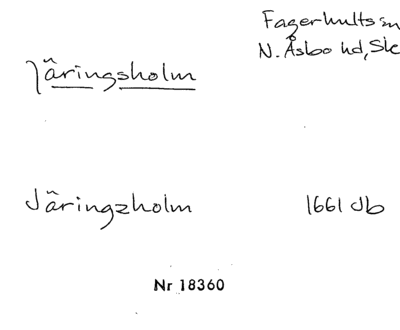 Fagerhults sn
N. Åsbo hd, Sk
Järingsholm
Järingzholm 1661 Jb
Nr 18360